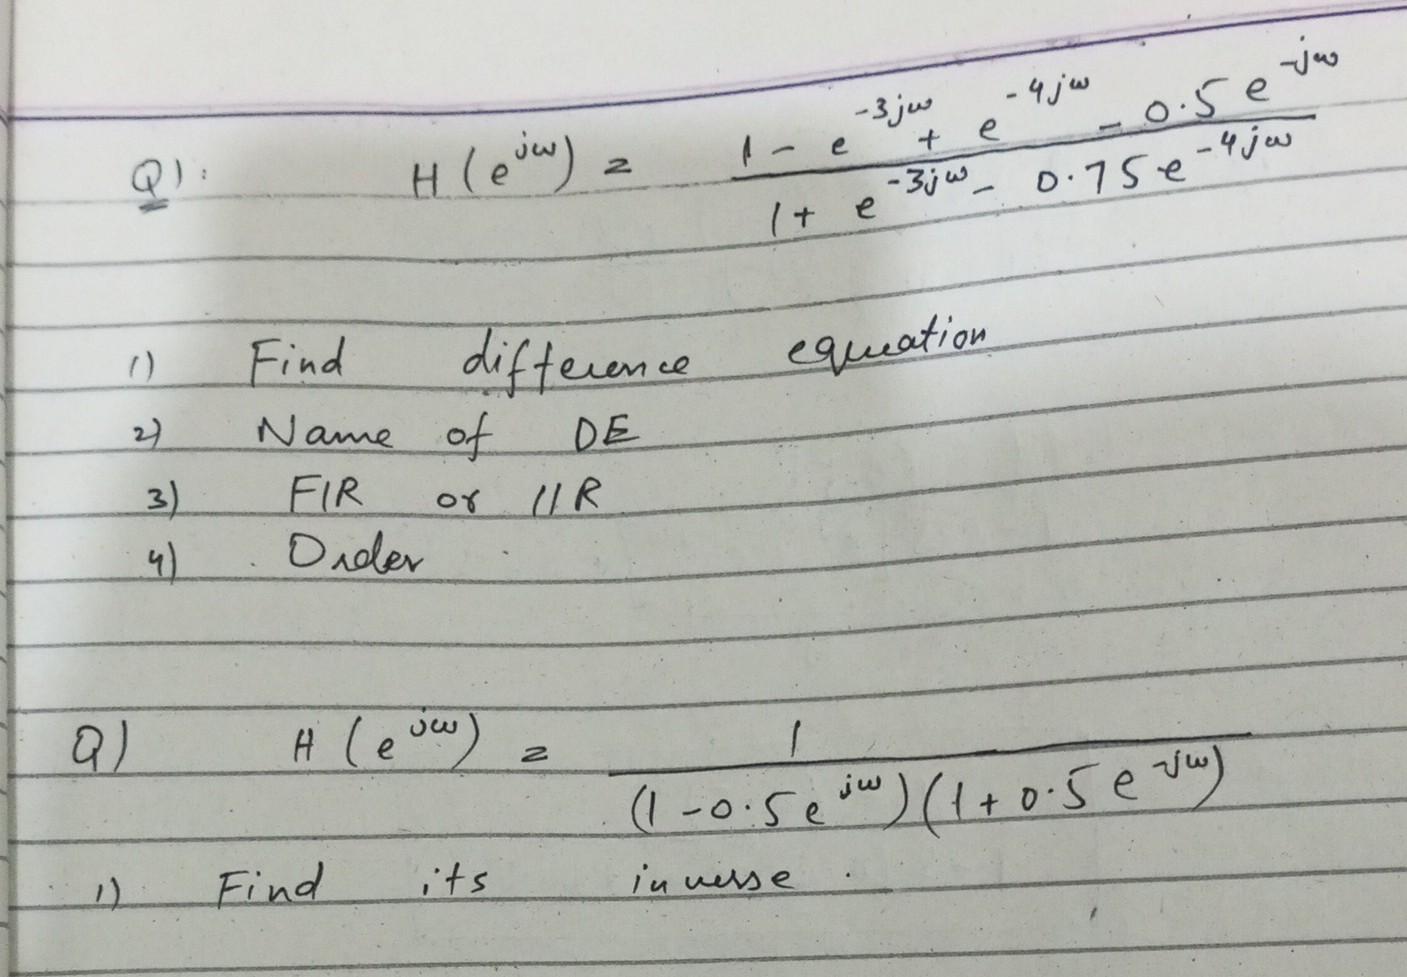 Q1: H(e^{jω}) = \frac{1 - e^{-3jω} + e^{-4jω} - 0.5e^{-jω}}{1 + e^{-3jω} - 0.75e^{-4jω}}
1) Find difference equation
2) Name of DE
3) FIR or IIR
4) Order
Q) H(e^{jω}) = \frac{1}{(1 - 0.5e^{jω})(1 + 0.5e^{-jω})}
1) Find its inverse.